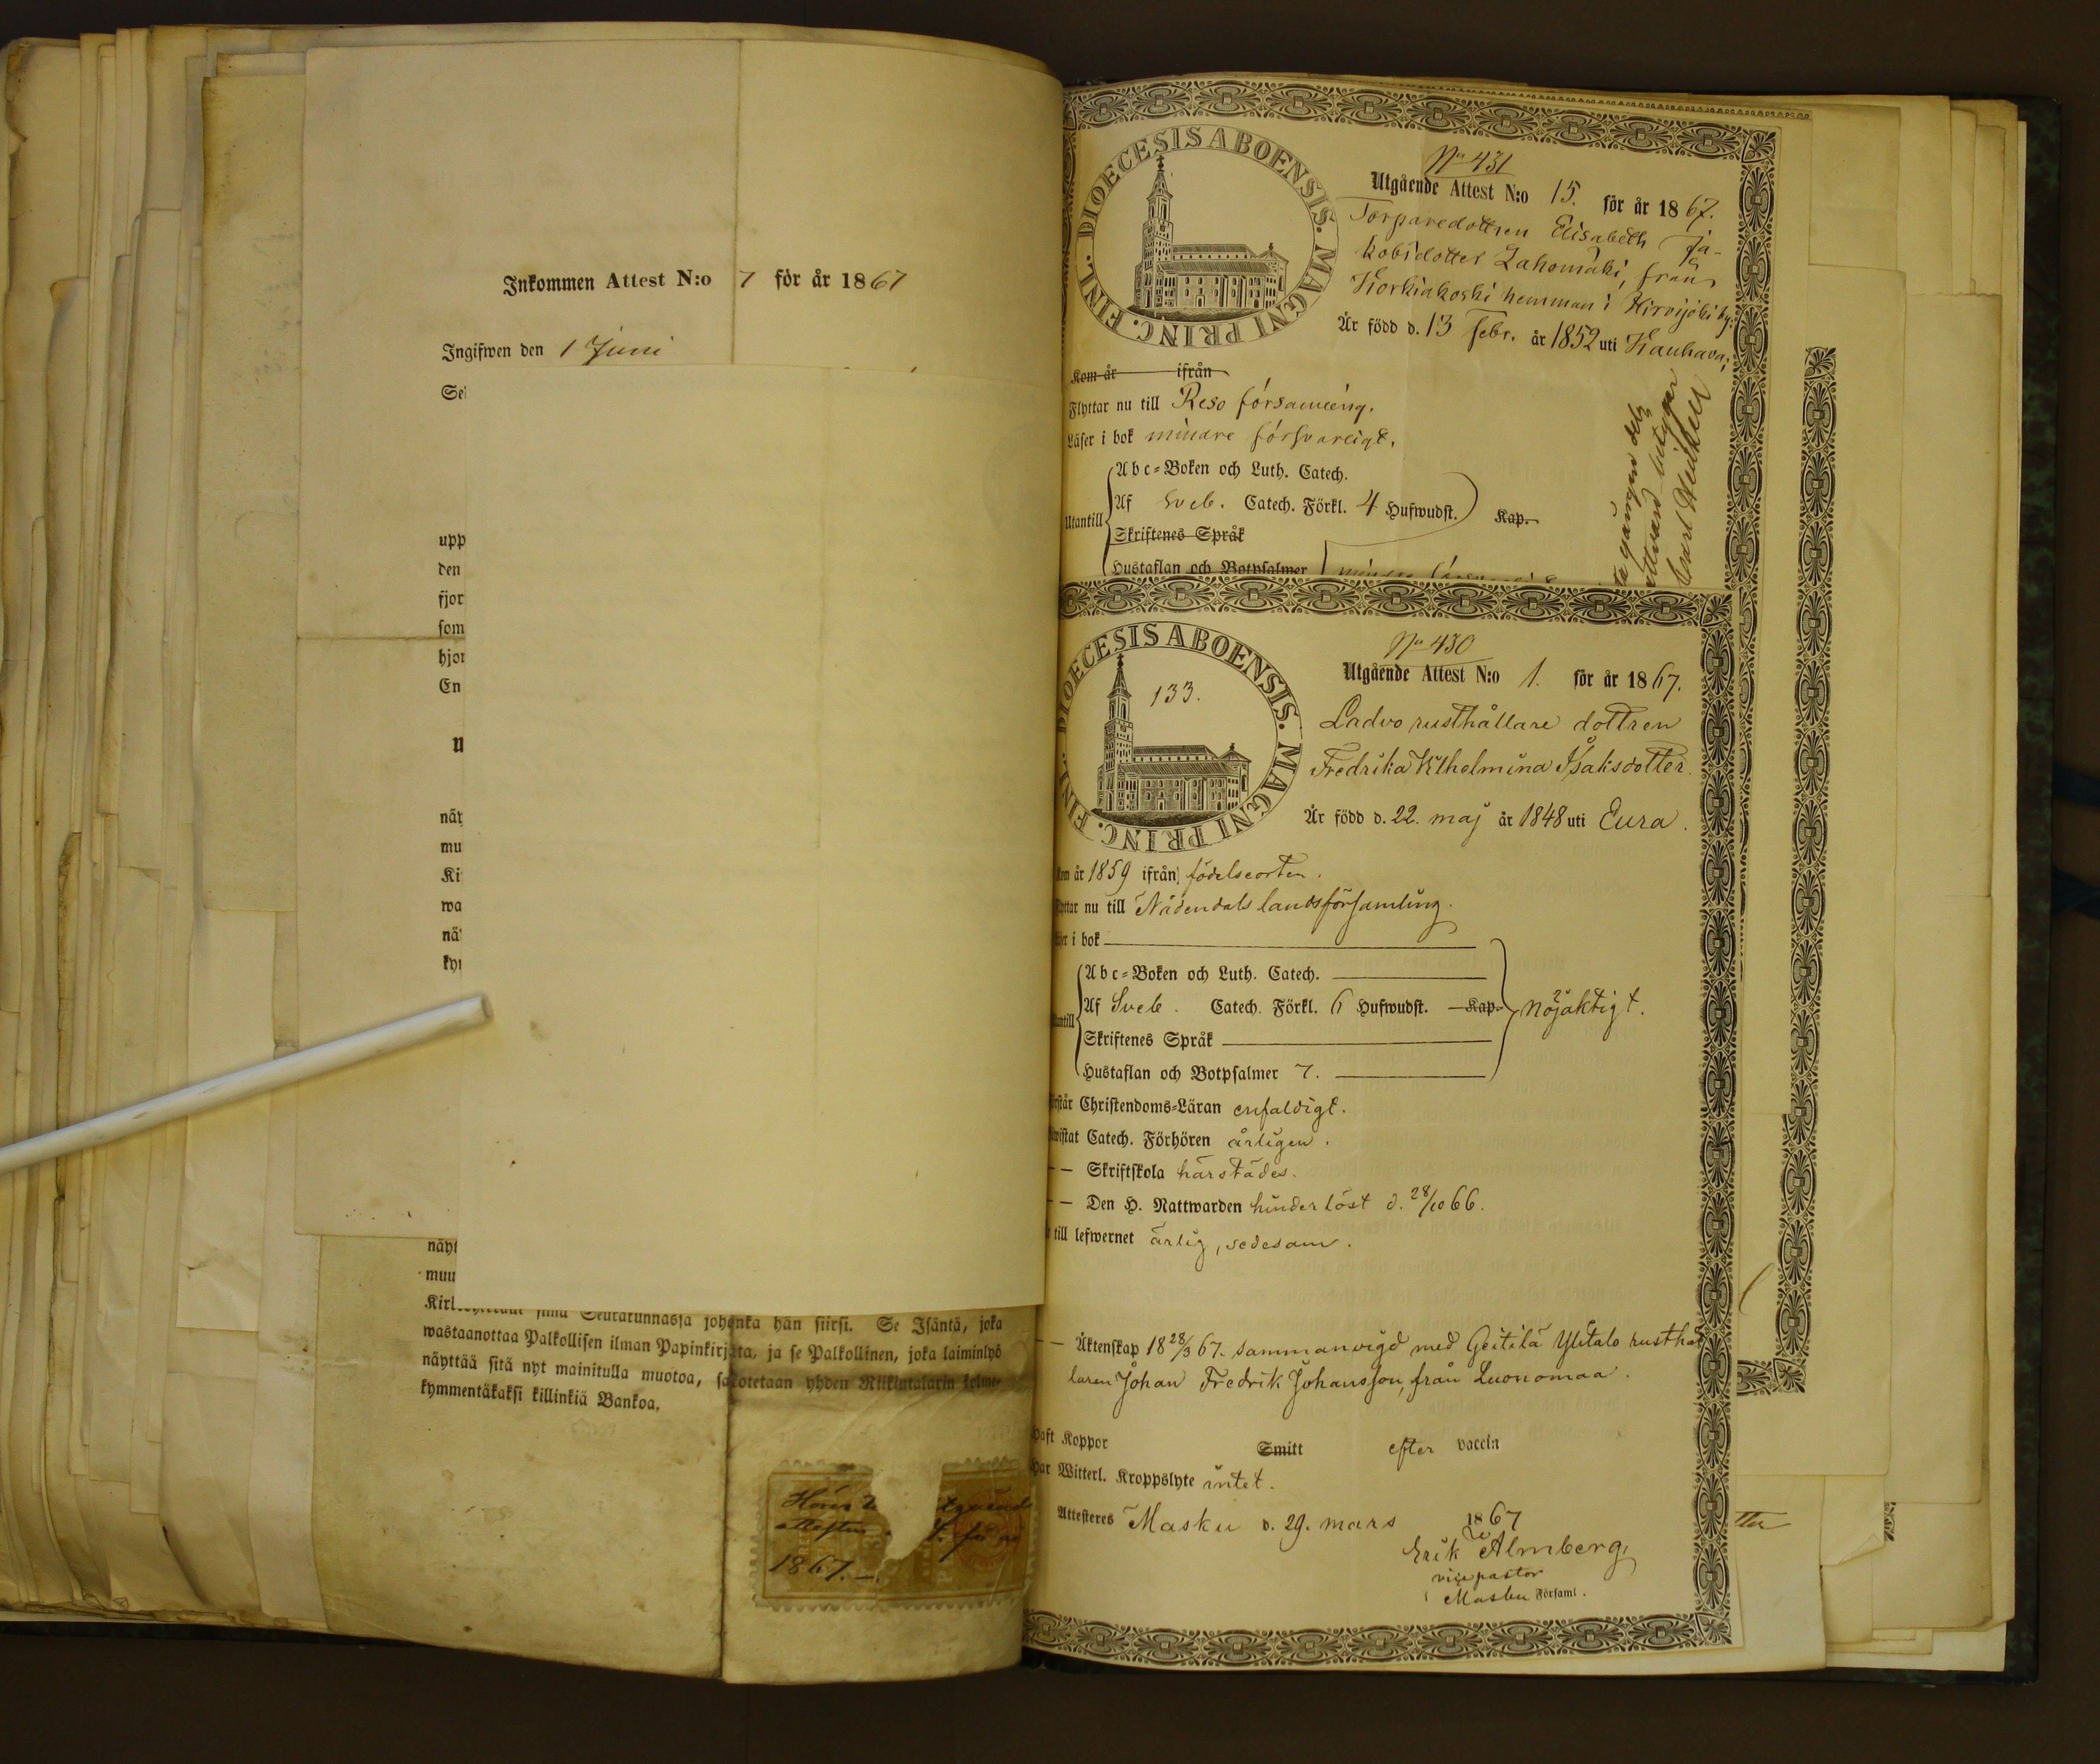 Inkommen Attest N:o 7 för år 1867
Ingifwen den 1 Juni
Se
upp
den
fjor
som
hjor
En
näy
mu
Ki
wa
nä
kyr
näyt
muu
Seurakunnassa johonka hän siirsi. Se Isäntä, joka
wastaanottaa Palkollisen ilman Papinkirjata, ja se Palkollinen, joka laiminlyö
näyttää sitä nyt mainitulla muotoa, sakotetaan yhden Riikintalarin kolme-
kymmentäkaksi killinkiä Bankoa.
1867.
DIOECESIS ABOENSIS. MAGNI PRINC. FINL.
No 431
Utgående Attest N:o 15. för år 1867.
Torparedottren Elisabeth Ja-
kobsdotter Lahomäki, från
Korkiakoski hemman i Hirvijoki by.
Är född d. 13 Febr. år 1852 uti Kauhava.
Kom år ifrån
Flyttar nu till Reso församling.
Läser i bok mindre försvarligt.
Utantill
Abc-Boken och Luth. Catech.
Af Sveb. Catech. Förkl. 4 Hufwudst. Kap.
Skriftenes Språk
Hustaflan och Botpsalmer
DIOECESIS ABOENSIS. MAGNI PRINC. FINL.
133.
No 430
Utgående Attest N:o 1. för år 1867.
Ladvo rusthållare dottren
Fredrika Vilhelmina Isaksdotter.
Är född d. 22. maj år 1848 uti Eura.
Kom år 1859 ifrån födelseorten.
Flyttar nu till Nådendals landsförsamling.
i bok
Abc-Boken och Luth. Catech.
Af Sveb. Catech. Förkl. 6 Hufwudst. Kap. nöjaktigt.
Skriftenes Språk
Hustaflan och Botpsalmer 7.
Förstår Christendoms-Läran enfaldigt.
Bewistat Catech. Förhören årligen.
— Skriftskola härstädes.
— Den H. Nattwarden hinderlöst d. 28/10 66.
till lefwernet ärlig, sedesam.
— Äktenskap 18 28/3 67. sammanvigd med Geitilä Ylitalo rusthål
laren Johan Fredrik Johansson, från Luonomaa.
Haft Koppor Smitt efter vaccin
Har Witterl. Kroppslyte intet.
Attesteres Masku d. 29. mars 1867
Erik Almberg,
vice pastor
Masku Församl.